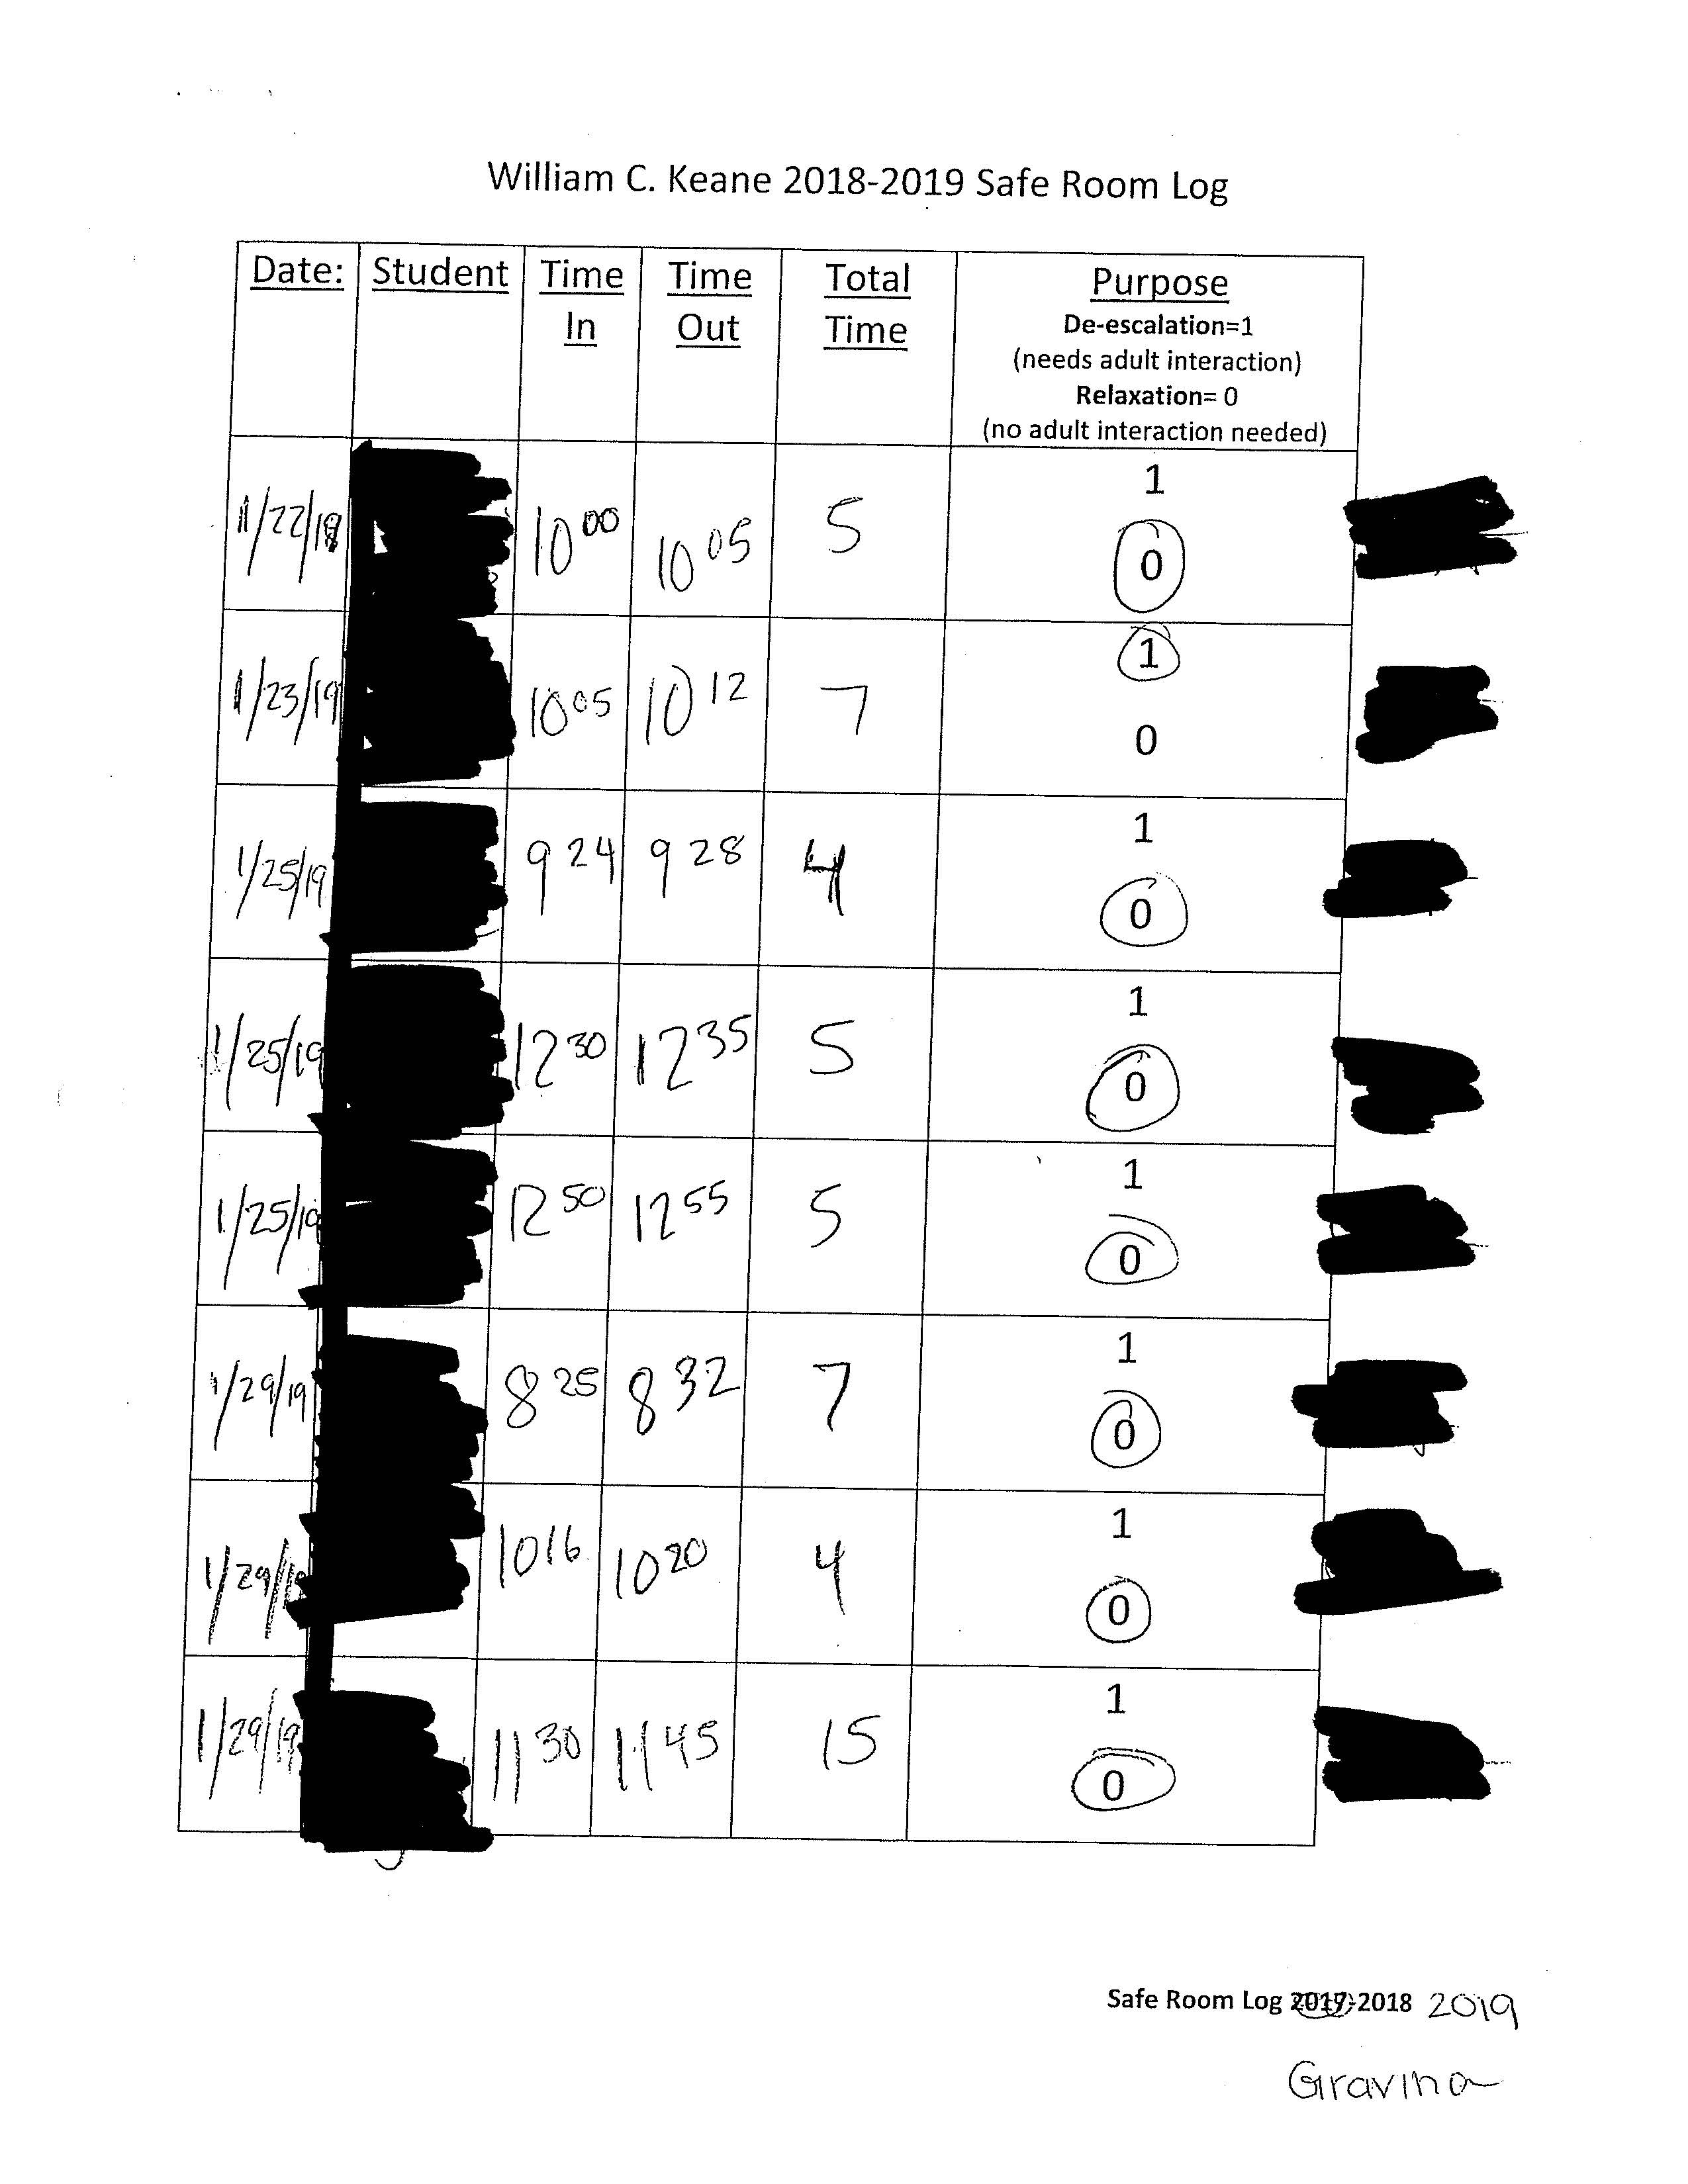 William C. Keane 2018-2019 Safe Room Log
Date: Student Time In Time Out Total Time Purpose
De-escalation=1
(needs adult interaction)
Relaxation= 0
(no adult interaction needed)
1
1/22/19 10 00 10 05 5
0
1
1/23/19 10 05 10 12 7
0
1
1/25/19 9 24 9 28 4
0
1
1/25/19 12 30 12 35 5
0
1
1/25/19 12 50 12 55 5
0
1
1/29/19 8 25 8 32 7
0
1
1/29/19 10 16 10 20 4
0
1
1/29/19 11 30 11 45 15
0
Safe Room Log 2017-2018 2019
Gravina